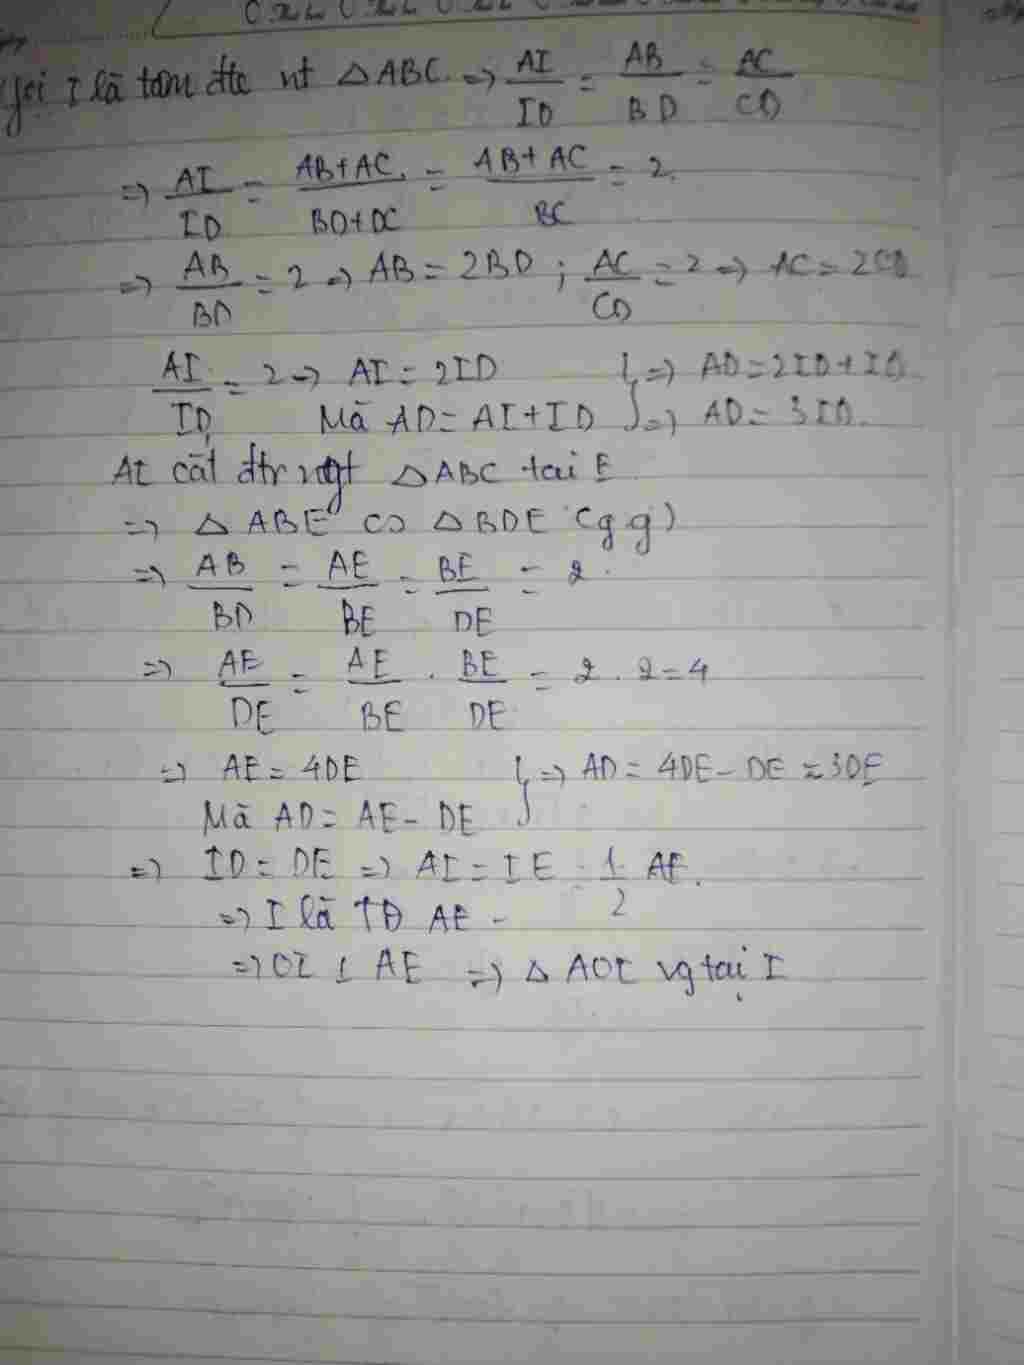 Gọi I là tâm đtr nt △ABC. => AI/ID = AB/BD = AC/CD
=> AI/ID = AB+AC/BD+DC = AB+AC/BC = 2.
=> AB/BD = 2 => AB = 2BD ; AC/CD = 2 => AC = 2CD
AI/ID = 2 => AI = 2ID } => AD = 2ID + ID
Mà AD = AI + ID } => AD = 3ID.
AI cắt đtr ngt △ABC tại E
=> △ABE ∽ △BDE (g.g)
=> AB/BD = AE/BE = BE/DE = 2.
=> AE/DE = AE/BE . BE/DE = 2 . 2 = 4
=> AE = 4DE } => AD = 4DE - DE = 3DE
Mà AD = AE - DE
=> ID = DE => AI = IE = 1/2 AE.
=> I là TĐ AE
=> OI ⊥ AE => △AOI vg tại I